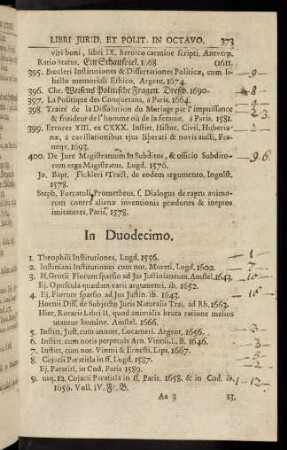 LIBRI JURID. ET POLIT. IN OCTAVO. 373
viri boni, libri IX, heroico carmine scripti, Antverp.
Ratio Status, Ein Schauspiel. 1668. 1611.
395. Bœcleri Institutiones & Dissertationes Politicæ, cum libello memoriali Ethico. Argent. 1674. - 9 -
396. Chr. Weisens Politische Fragen. Dreßd. 1690. - 8 -
397. La Politique des Conquerans, à Paris, 1664. - 4 -
398. Traité de la Dissolution de Mariage par l'impuissance & froideur de l'homme où de la femme, à Paris. 1581.
399. Errores XIII. ex CXXX. Instier. Histor. Civil, Huberianæ, à cavillationibus ejus liberati & novis aucti, Franeqv. 1693.
400. De Jure Magistratuum in Subditos, & officio Subditorum erga Magistratus. Lugd. 1576. - 9 6.
Jo. Bapt. Fickleri Tract. de eodem argumento, Ingolst. 1578.
Steph. Forcatuli Prometheus, s. Dialogus de raptu animorum contra aliena inventionis prædones & ineptos imitatores, Paris. 1578.
In Duodecimo.
1. Theophili Institutiones, Lugd. 1536.
2. Justiniani Institutiones cum not. Moreti, Lugd. 1602.
3. H. Grotii Florum sparsio ad Jus Justinianeum. Amstel. 1643.
Ej. Opuscula quædam varii argumenti, ib. 1652.
4. Ej. Florum sparsio ad Jus Justin. ib. 1643.
Hornii Diss. de Subjecto Juris Naturalis Traj. ad Rh. 1663.
Hier. Rorarii Libri II, quod animalia bruta ratione melius utantur homine. Amstel. 1666.
5. Institut. Just. cum annot. Locameri. Argent. 1656.
6. Institut. cum notis perpetuis Arn. Vinnii. L. B. 1646.
7. Institut. cum not. Vinnii & Ernesti. Lips. 1667.
8. Cujacii Paratitla in ff. Lugd. 1587.
Ej. Paratitl. in Cod. Paris 1589.
9. unq. 12. Cujacii Paratitla in ff. Paris. 1658. & in Cod. ib. 1656. Voll. IV. Fr. B. - 12 -
Aa 3 13.